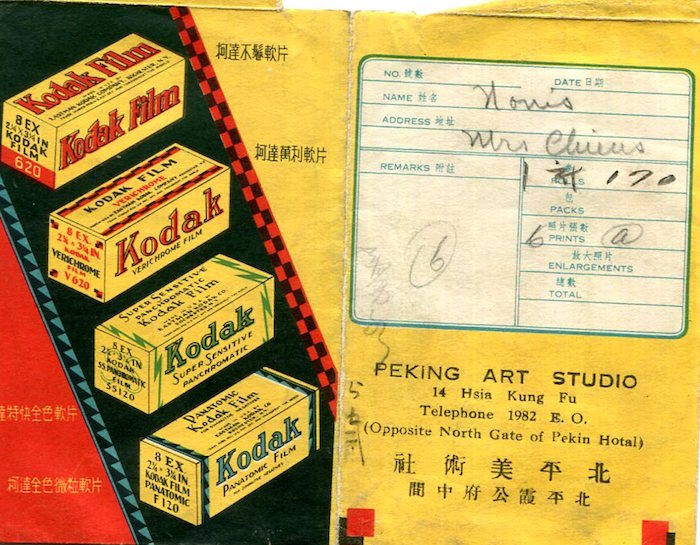 Kodak Film
EASTMAN KODAK COMPANY, ROCHESTER, N.Y.
Kodak Film
8 EX
2¼ × 3¼ IN
KODAK
FILM
620
柯達不鬈軟片
KODAK FILM
VERICHROME
Kodak
VERICHROME FILM
8 EX
2¼ × 3¼ IN
KODAK
VERICHROME
FILM
V620
柯達萬利軟片
SUPER SENSITIVE
PANCHROMATIC
Kodak Film
Kodak
SUPER SENSITIVE
PANCHROMATIC
8 EX
2¼ × 3¼ IN
KODAK
SS PANCHROMATIC
FILM
SS120
達特快全色軟片
PANATOMIC
Kodak Film
EASTMAN KODAK CO
Kodak
PANATOMIC FILM
8 EX
2¼ × 3¼ IN
KODAK FILM
PANATOMIC
F120
柯達全色微粒軟片
NO. 號數
DATE 日期
NAME 姓名 Norris
ADDRESS 地址
Mrs
REMARKS 附註
ROLLS
1 170
包
PACKS
照片張數
6 PRINTS a
放大照片
ENLARGEMENTS
總數
TOTAL
6
PEKING ART STUDIO
14 Hsia Kung Fu
Telephone 1982 E. O.
(Opposite North Gate of Pekin Hotal)
社術美平北
間中府公霞平北